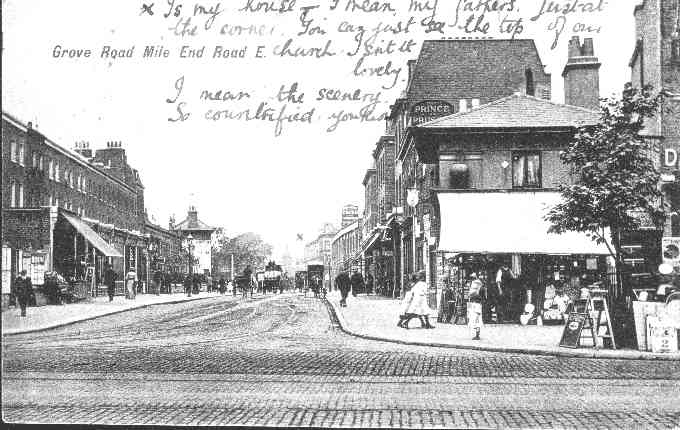 x Is my house - I mean my fathers. Just at
the corner. You can just see the top of our
Grove Road Mile End Road E. church. Isn't it
lovely.
I mean the scenery
So countrified you know
PRINCE
D